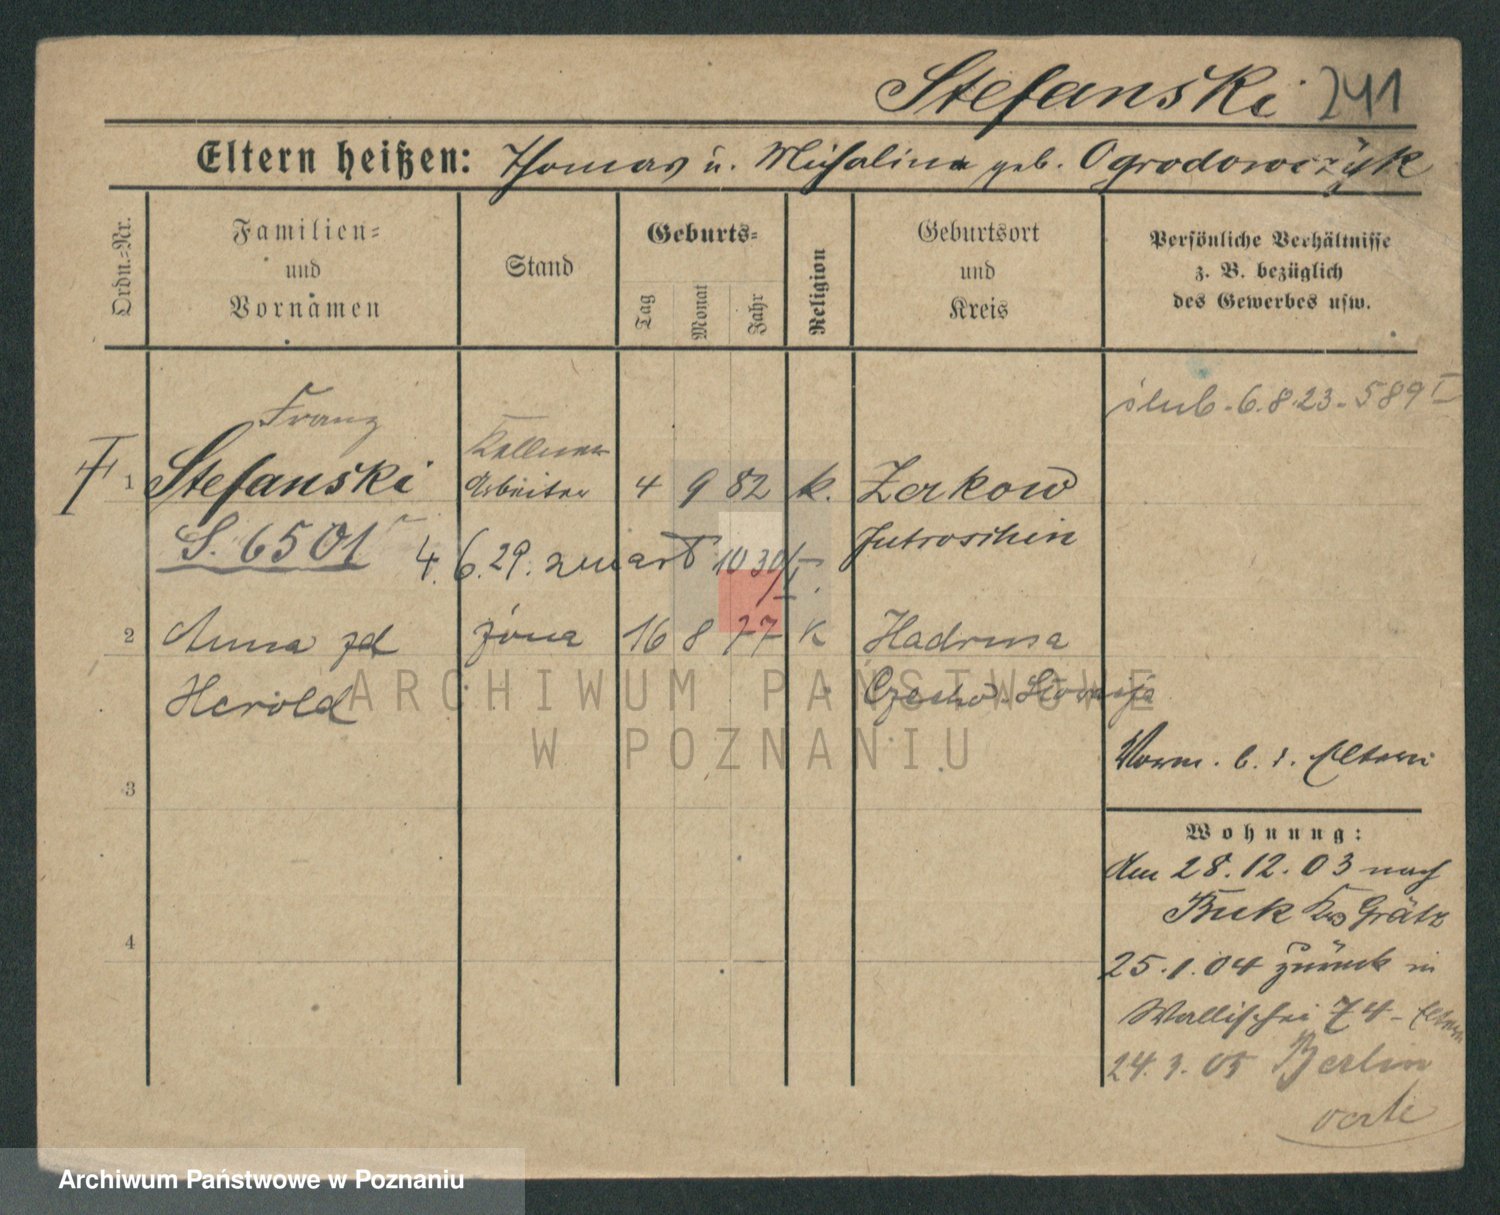 Stefanski 241
Eltern heißen: Thomas u. Michalina geb. Ogrodowczyk
Ordn.-Nr.
Familien- und Vornamen
Stand
Geburts-
Tag
Monat
Jahr
Religion
Geburtsort und Kreis
Persönliche Verhältnisse
z. B. bezüglich
des Gewerbes usw.
ślub. 6.8.23 - 589 I
Franz
Kellner
1 Stefanski Arbeiter 4 9 82 k. Zerkow
S. 6501 Jutroschin
4. 6. 29. zmarł 1030/I.
2 Anna zd żona 16 8 77 k
Herold
ARCHIWUM PAŃSTWOWE
W POZNANIU
Vorm. b. d. Eltern
3
Wohnung:
am 28.12.03 nach
Buk Krs Grätz
25.1.04 zurück in
Wallischei 74 - Eltern
24.3.05 Berlin
4
Archiwum Państwowe w Poznaniu